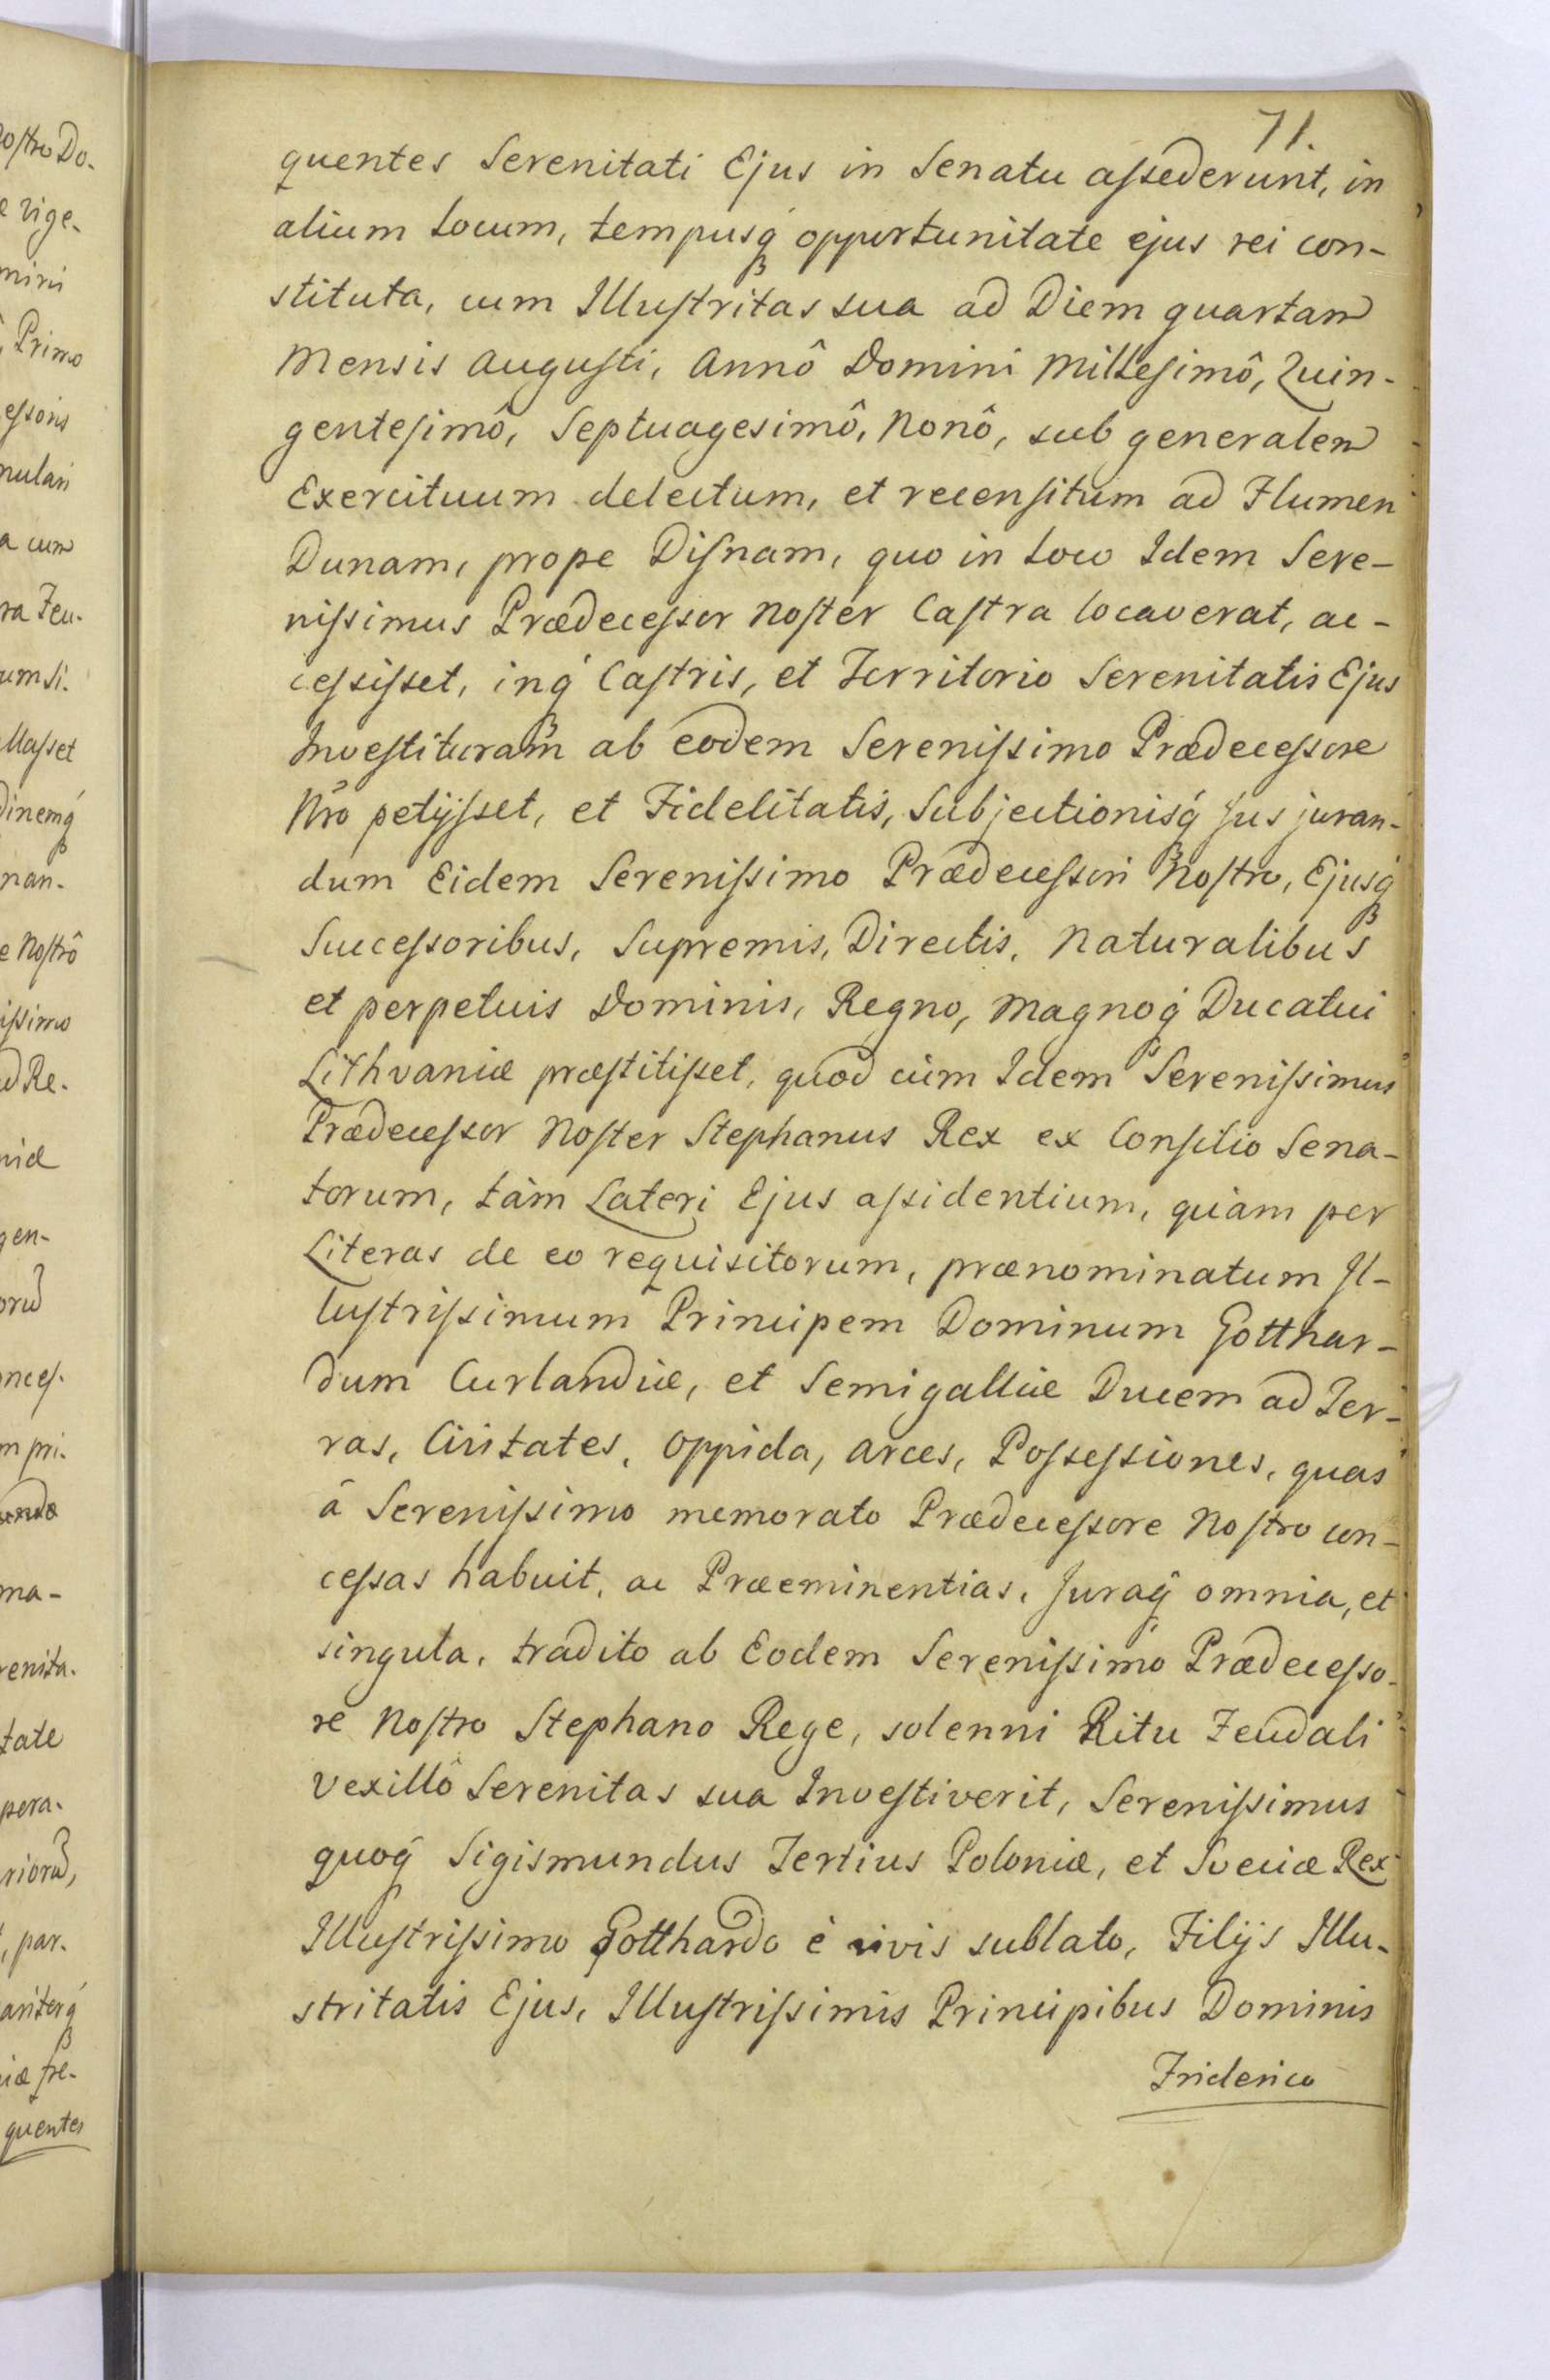 71.
quentes Serenitati Ejus in Senatu aſsederunt, in
alium Locum, tempusq́ opportunitate ejus rei con-
stituta, cum Illuſtritas sua ad Diem quartam
Mensis Auguſti, Annô Domini Milleſimô, Quin-
genteſimô, Septuagesimô, Nonô, sub generalem
Exercituum delectum, et recenſitum ad Flumen
Dunam, prope Diſnam, quo in Loco Idem Sere-
niſsimus Prædeceſsor Noſter Caſtra locaverat, ac-
ceſsiſset, inq́ Caſtris, et Territorio Serenitatis Ejus
Inveſtituram ab eodem Sereniſsimo Prædeceſsore
Nrõ petijſset, et Fidelitatis, Subjectionisq́ Jus juran-
dum Eidem Sereniſsimo Prædeceſsori Noſtro, Ejusq́
Succeſsoribus, Supremis, Directis, Naturalibus
et perpetuis Dominis, Regno, Magnoq́ Ducatui
Lithvaniæ præſtitiſset, quod cùm Idem Sereniſsimus
Prædeceſsor Noſter Stephanus Rex ex Conſilio Sena-
torum, tàm Lateri Ejus aſsidentium, quàm per
Literas de eo requisitorum, prænominatum Il-
luſtriſsimum Principem Dominum Gotthar-
dum Curlandiæ, et Semigalliæ Ducem ad Ter-
ras, Civitates, Oppida, Arces, Poſseſsiones, quas
á Sereniſsimo memorato Prædeceſsore Noſtro con-
ceſsas habuit, ac Præeminentias, Juraq́ omnia, et
singula, tradito ab Eodem Sereniſsimo Prædeceſso-
re Noſtro Stephano Rege, solenni Ritu Feudali
Vexillô Serenitas sua Inveſtiverit, Sereniſsimus
quoq́ Sigismundus Tertius Poloniæ, et Sveciæ Rex
Illuſtriſsimo Gotthardo è vivis sublato, Filijs Illu-
stritatis Ejus, Illuſtriſsimis Principibus Dominis
Friderico